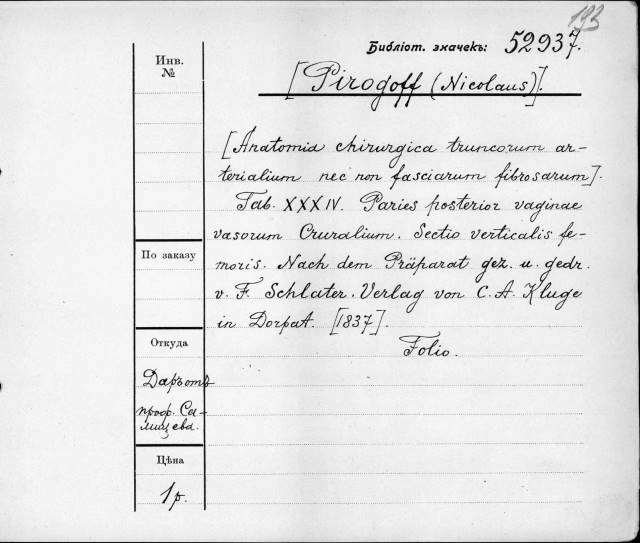 193
Библіот. значекъ: 52937.
Инв.
№
[Pirogoff (Nicolaus)].
[Anatomia chirurgica truncorum ar-
terialium nec non fasciarum fibrosarum].
Tab. XXXIV. Paries posterior vaginae
vasorum Cruralium. Sectio verticalis fe-
moris. Nach dem Präparat gez. u. gedr.
v. F. Schlater. Verlag von C. A. Kluge
in Dorpat. [1837].
Folio.
По заказу
Откуда
Даръ отъ
проф. Са-
лищева.
Цѣна
1 р.